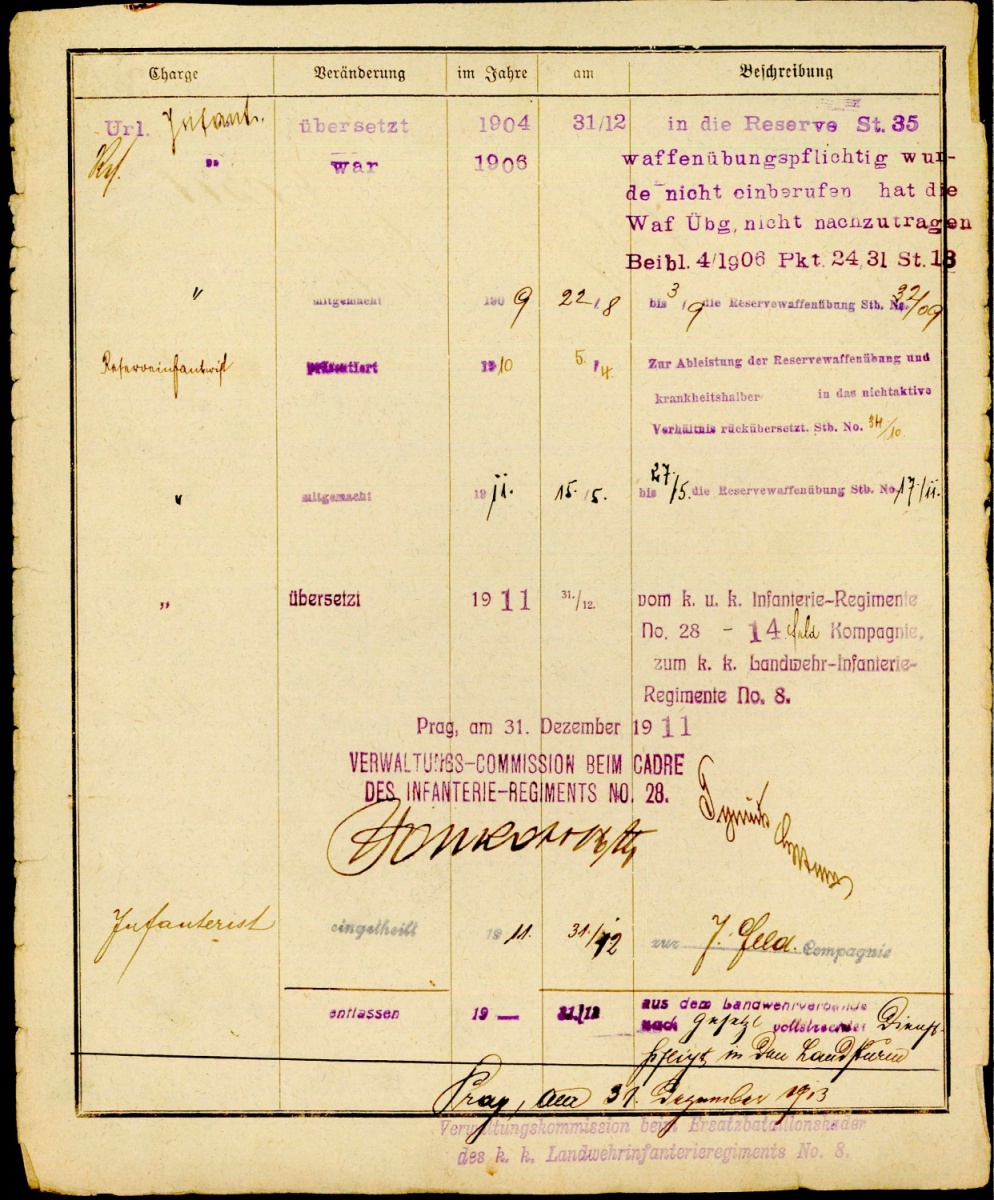 Charge Veränderung im Jahre am Beschreibung
Url. Infant. übersetzt 1904 31/12 in die Reserve St. 35
Res. " war 1906 waffenübungspflichtig wur-
de nicht einberufen hat die
Waf Übg, nicht nachzutragen
Beibl. 4/1906 Pkt. 24,31 St. 13
" mitgemacht 1909 22/8 bis 3/9 die Reservewaffenübung Stb. No. 32/09
Reserveinfanterist präsentiert 1910 5./4. Zur Ableistung der Reservewaffenübung und
krankheitshalber in das nichtaktive
Verhältnis rückübersetzt. Stb. No. 34/10.
" mitgemacht 1911. 15./5. bis 27/5. die Reservewaffenübung Stb. No. 17/11.
" übersetzt 1911 31./12. vom k. u. k. Infanterie-Regimente
No. 28 - 14. feld Kompagnie,
zum k. k. Landwehr-Infanterie-
Regimente No. 8.
Prag, am 31. Dezember 1911
VERWALTUNGS-COMMISSION BEIM CADRE
DES INFANTERIE-REGIMENTS NO. 28.
Infanterist eingetheilt 1911. 31./12 zur 7. Feld. Compagnie
entlassen 19 — 31/12 aus dem Landwehrverbande
nach Gesetzl vollstreckter Dienst-
pflicht in den Landsturm
Prag, am 31. Dezember 1913
Verwaltungskommission beim Ersatzbataillonskader
des k. k. Landwehrinfanterieregiments No. 8.